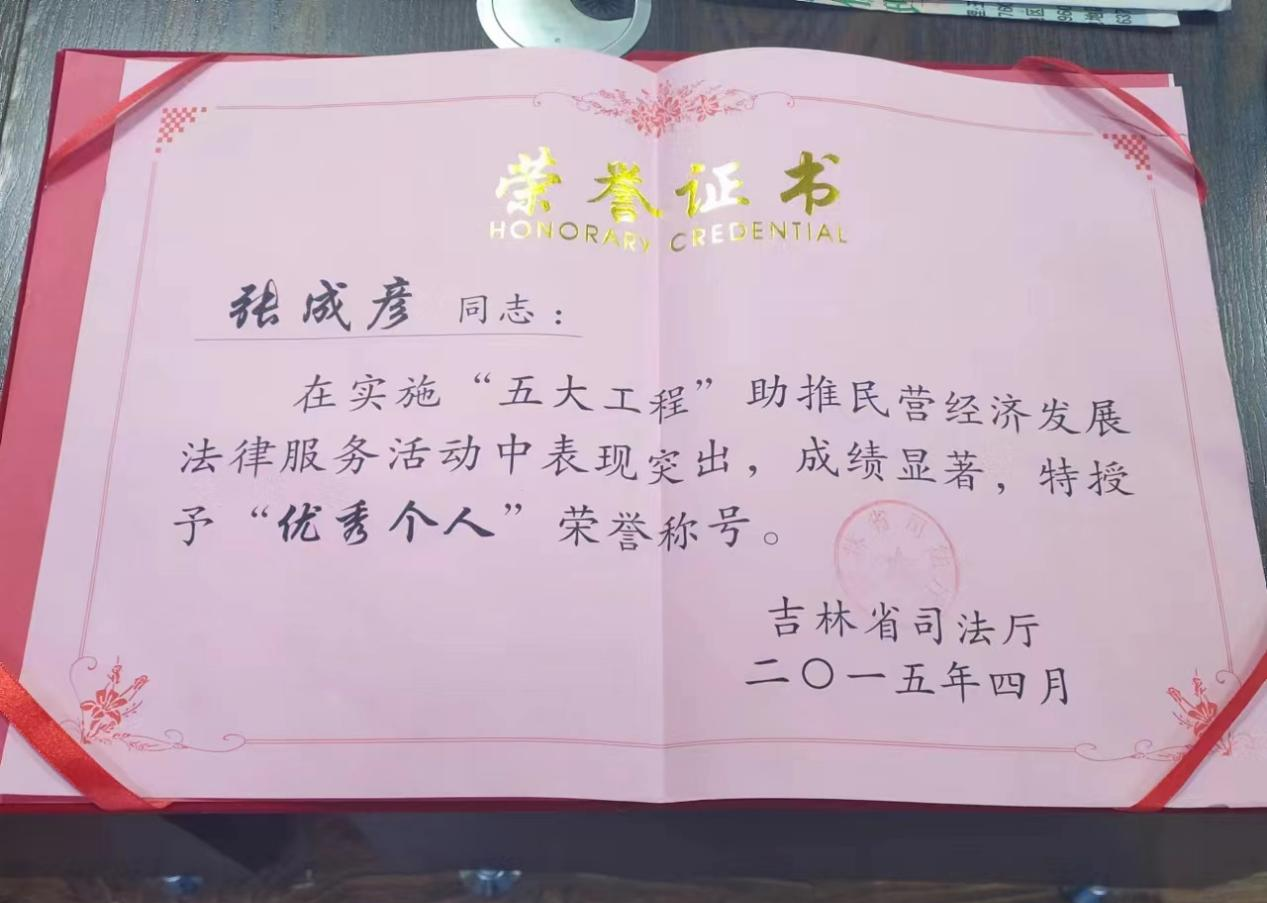 荣誉证书
HONORARY CREDENTIAL
张成彦 同志:
在实施“五大工程”助推民营经济发展
法律服务活动中表现突出,成绩显著,特授
予“优秀个人”荣誉称号。
吉林省司法厅
二〇一五年四月